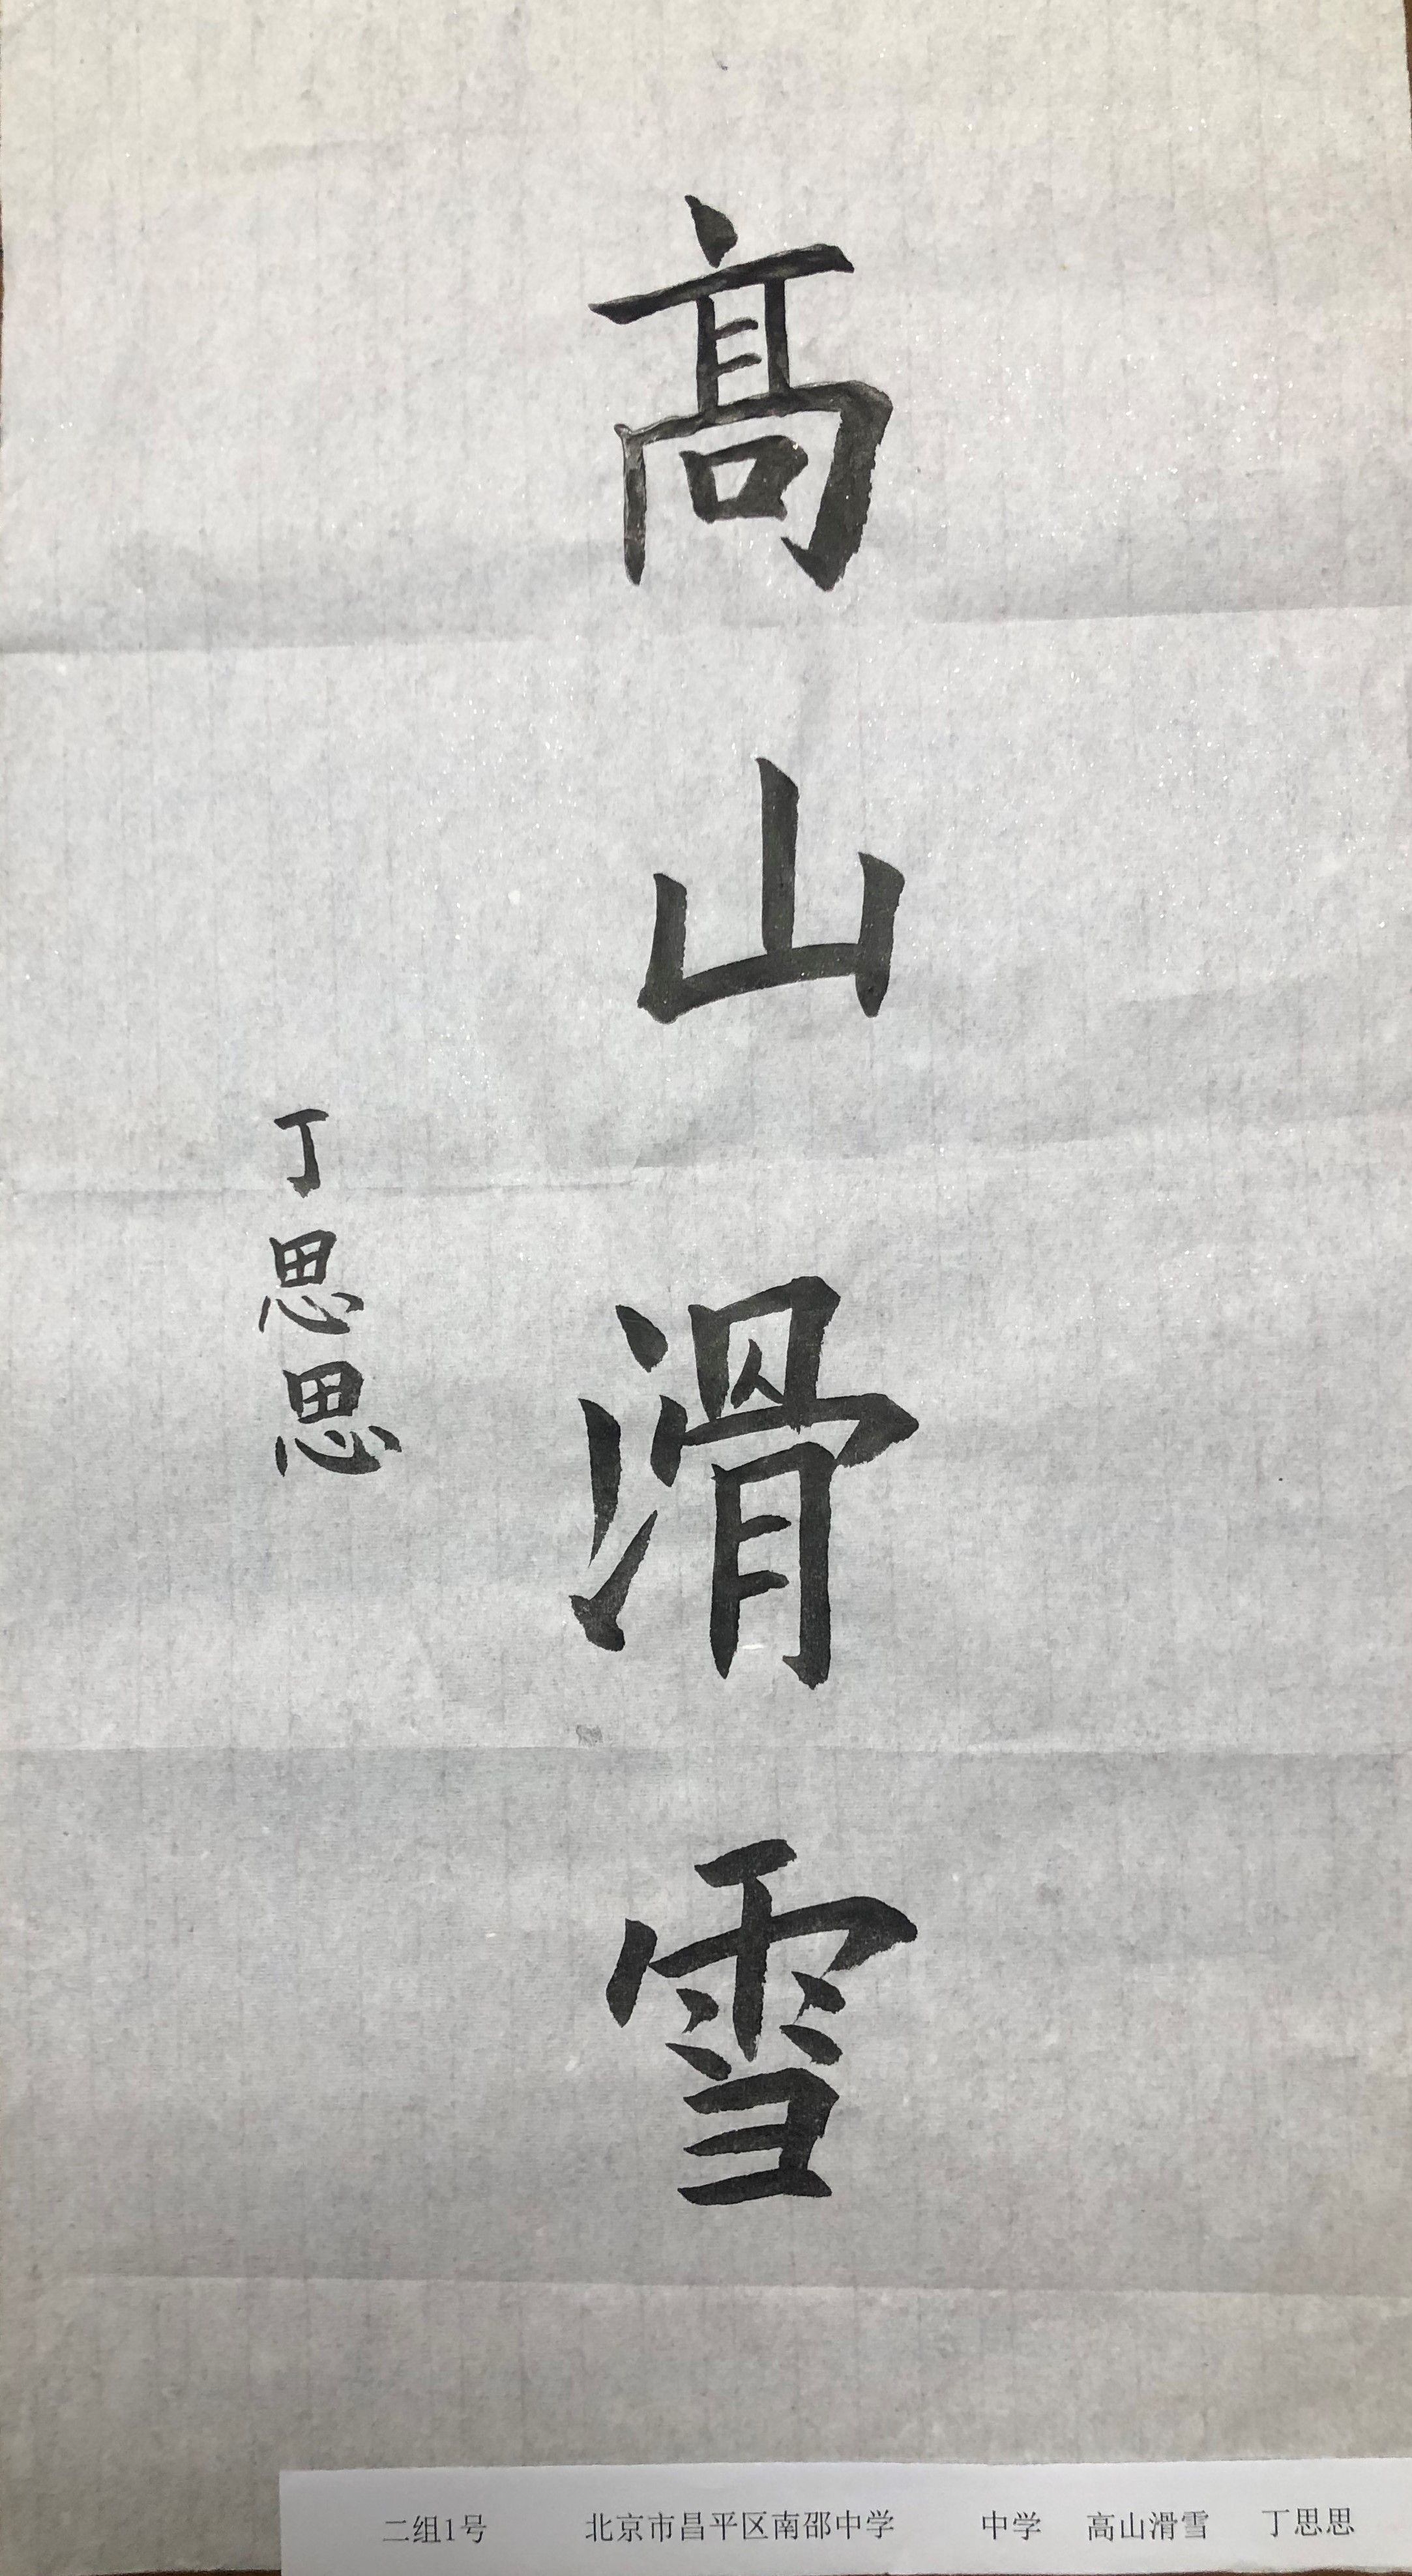 髙山滑雪
丁思思
二组1号 北京市昌平区南邵中学 中学 高山滑雪 丁思思